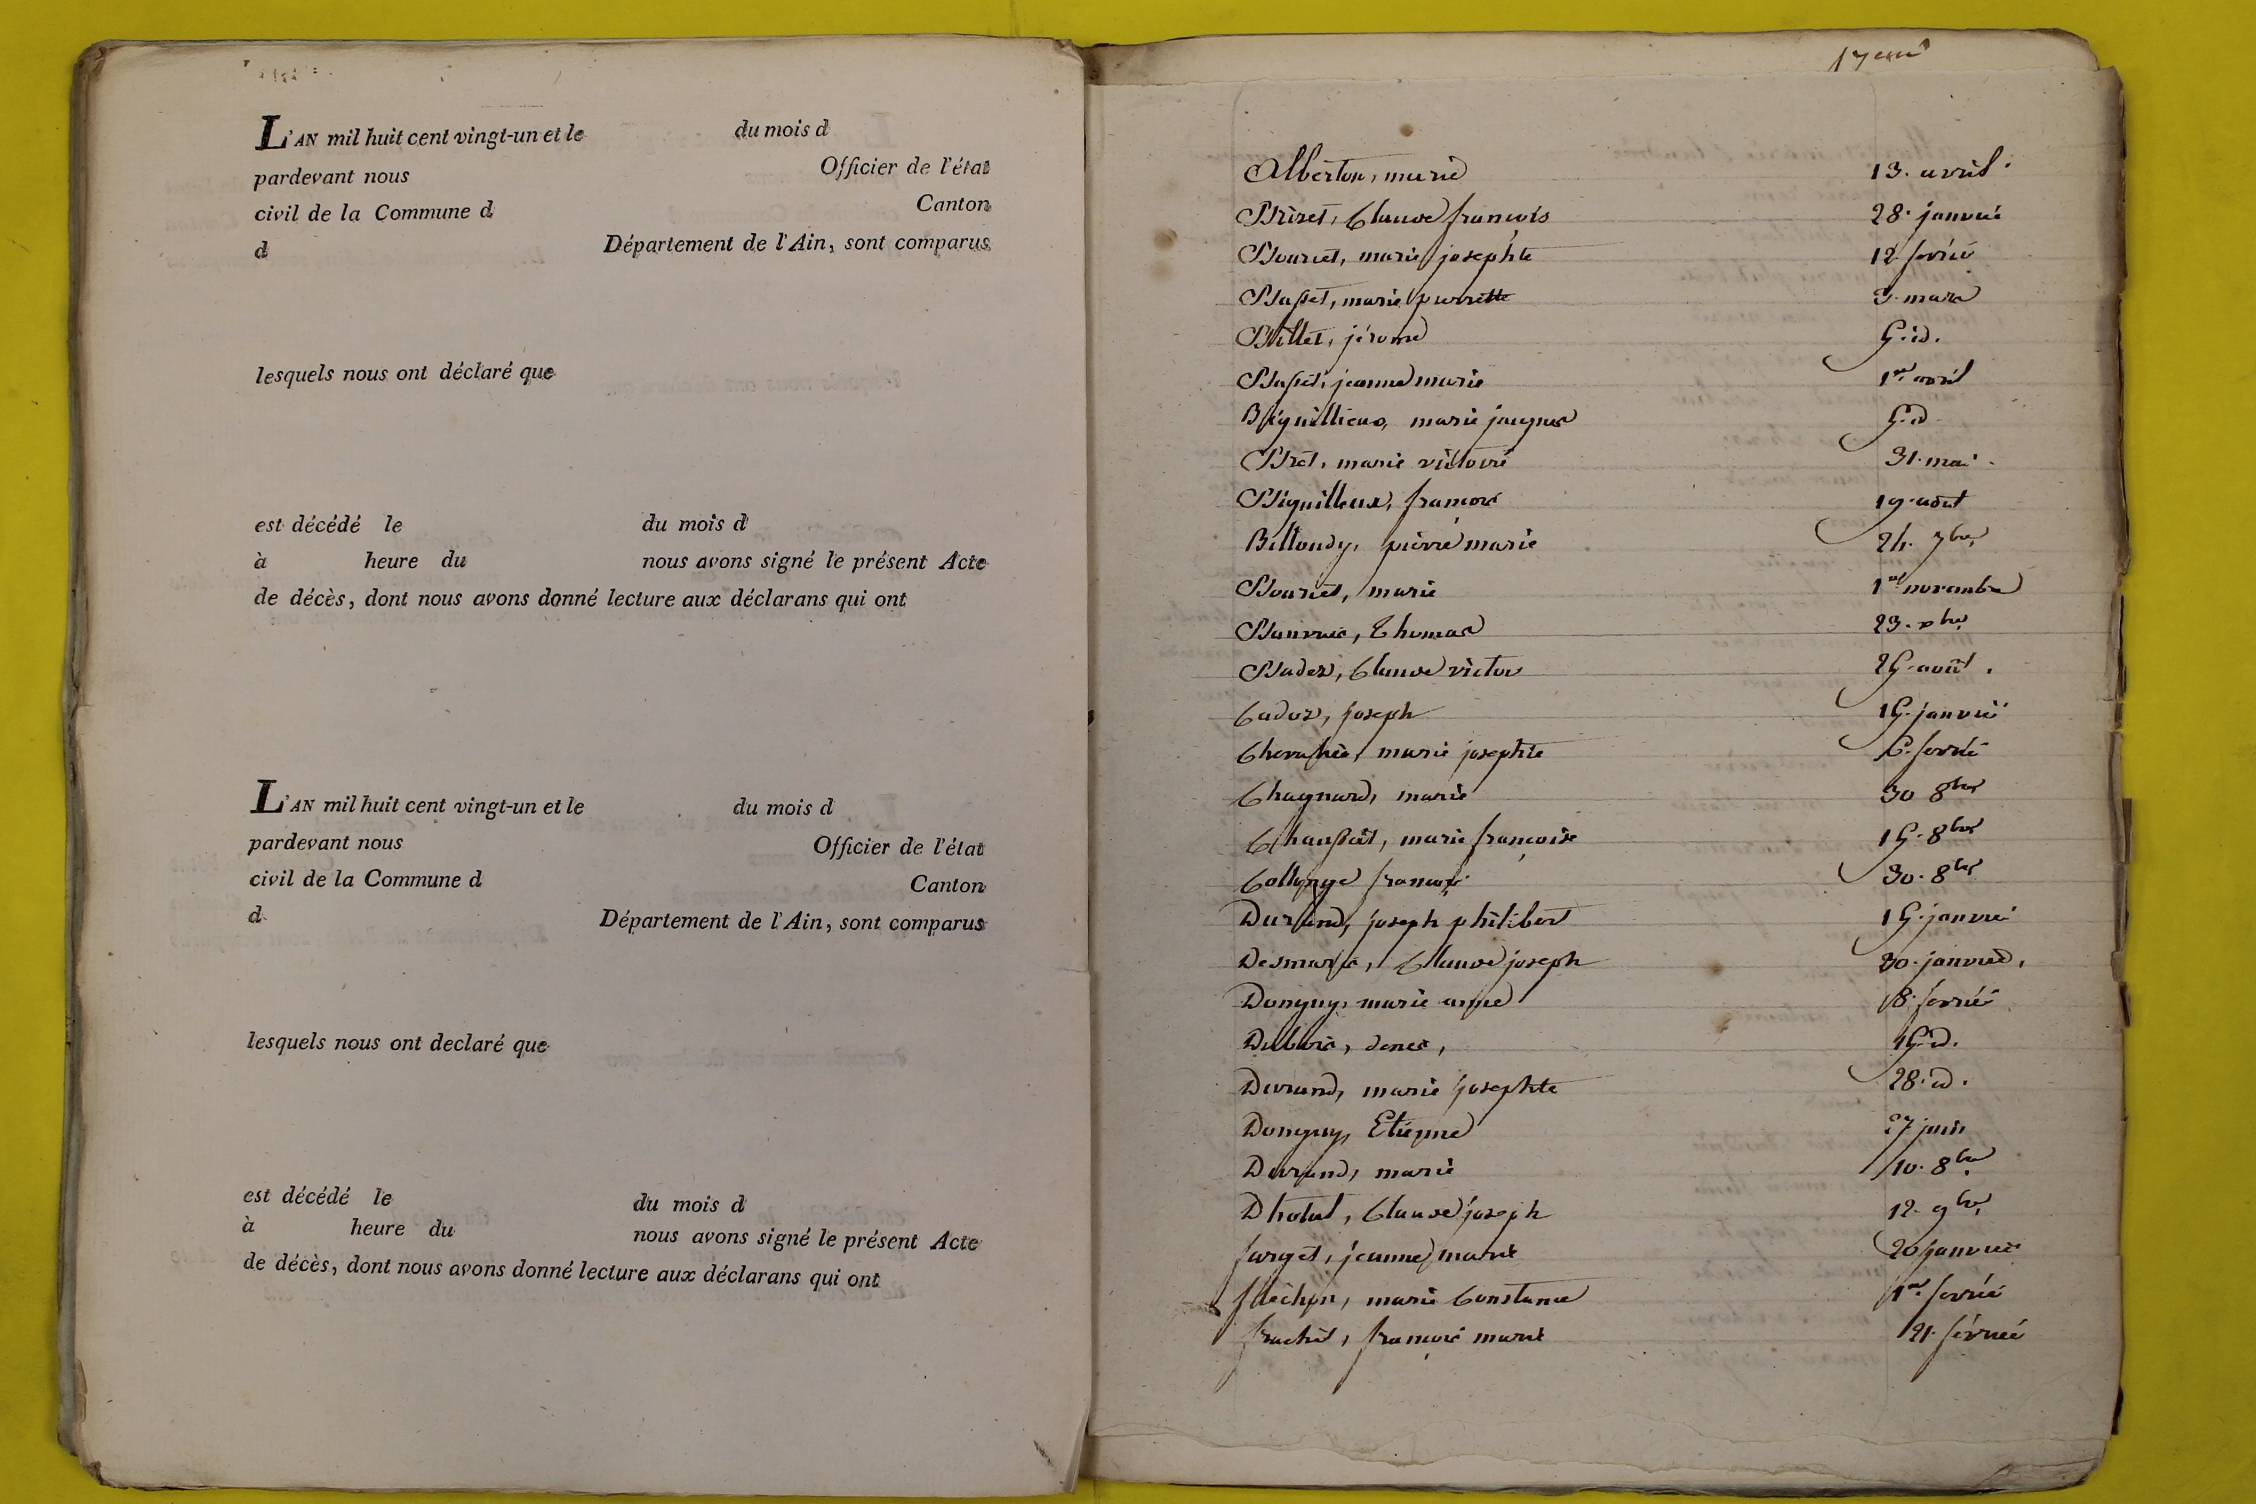 L'AN mil huit cent vingt-un et le du mois d
pardevant nous Officier de l'état
civil de la Commune d Canton
d Département de l'Ain, sont comparus
lesquels nous ont déclaré que
est décédé le du mois d
à heure du nous avons signé le présent Acte
de décès, dont nous avons donné lecture aux déclarans qui ont
L'AN mil huit cent vingt-un et le du mois d
pardevant nous Officier de l'état
civil de la Commune d Canton
d Département de l'Ain, sont comparus
lesquels nous ont declaré que
est décédé le du mois d
à heure du nous avons signé le présent Acte
de décès, dont nous avons donné lecture aux déclarans qui ont
Alberton, marie 13. avril
Brizet, Claude françois 28. janvié
Bouriet, marie josephte 12 fevrié
marie pierrette 3. mars
Billet, jérome 6. id.
jeanne marie 1er avril
marie jacques 6. id
Bret, marie victoire 31. mai
Biguilleux, francois 19. août
Billoudy, pierre marie 24. 7bre
Bouriet, marie 1er novembre
Thomas 23. xbre
Badoz, Claude victor 26. août.
Cadoz, joseph 16. janvié
marie josephte 6. fevrié
Chagnard, marie 30 8bre
marie françoise 16. 8bre
Collonge francois 30. 8bre
Durand, joseph philibert 16. janvié
Desmaris, Claude joseph 30. janvié.
Donguy, marie anne 8. fevrié
Dubois, denis, 16. id.
Durand, marie josephte 28. id.
Donguy, Etienne 27 juin
Durand, marie 10. 8bre
Dhotal, Claude joseph 12. 9bre
farget, jeanne marie 20 janvié
fléchon, marie Constance 1er fevrié
frachet, françois marie 21. février